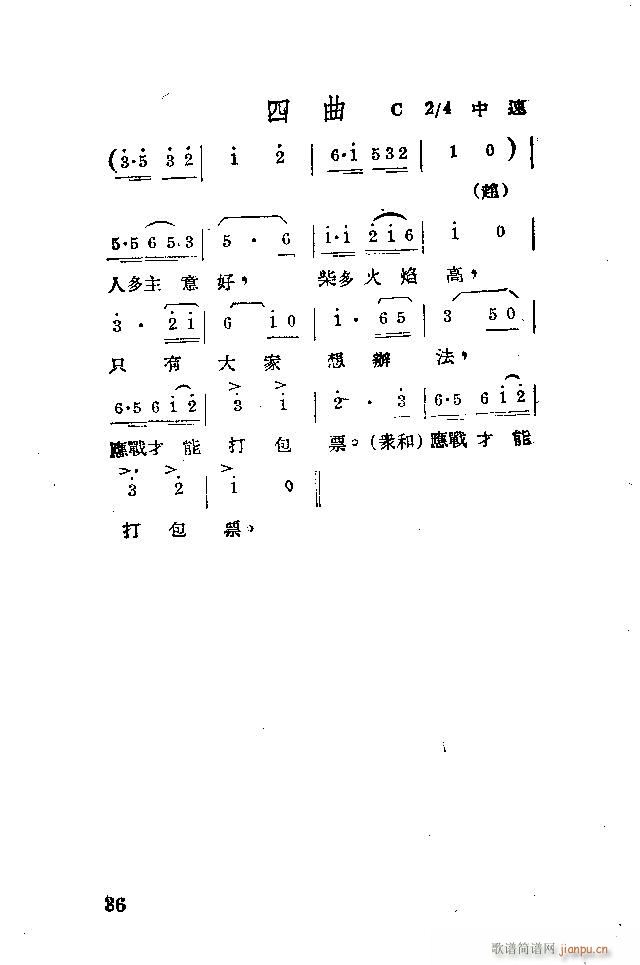 四曲 C 2/4 中速
(3·5 3 2 | 1 2 | 6·1 532 | 1 0 ) |
(趙)
5·5 6 5 3 | 5 · 6 | 1·1 2 1 6 | 1 0
人多主意好，柴多火焰高，
3 · 2 1 | 6 1 0 | 1 · 6 5 | 3 5 0
只有大家想辦法，
6·5 6 1 2 | 3 1 | 2 · 3 | 6·5 6 1 2
應戰才能打包票。(衆和)應戰才能
3 2 | 1 0 ‖
打包票。
36
歌谱简谱网 jianpu.cn